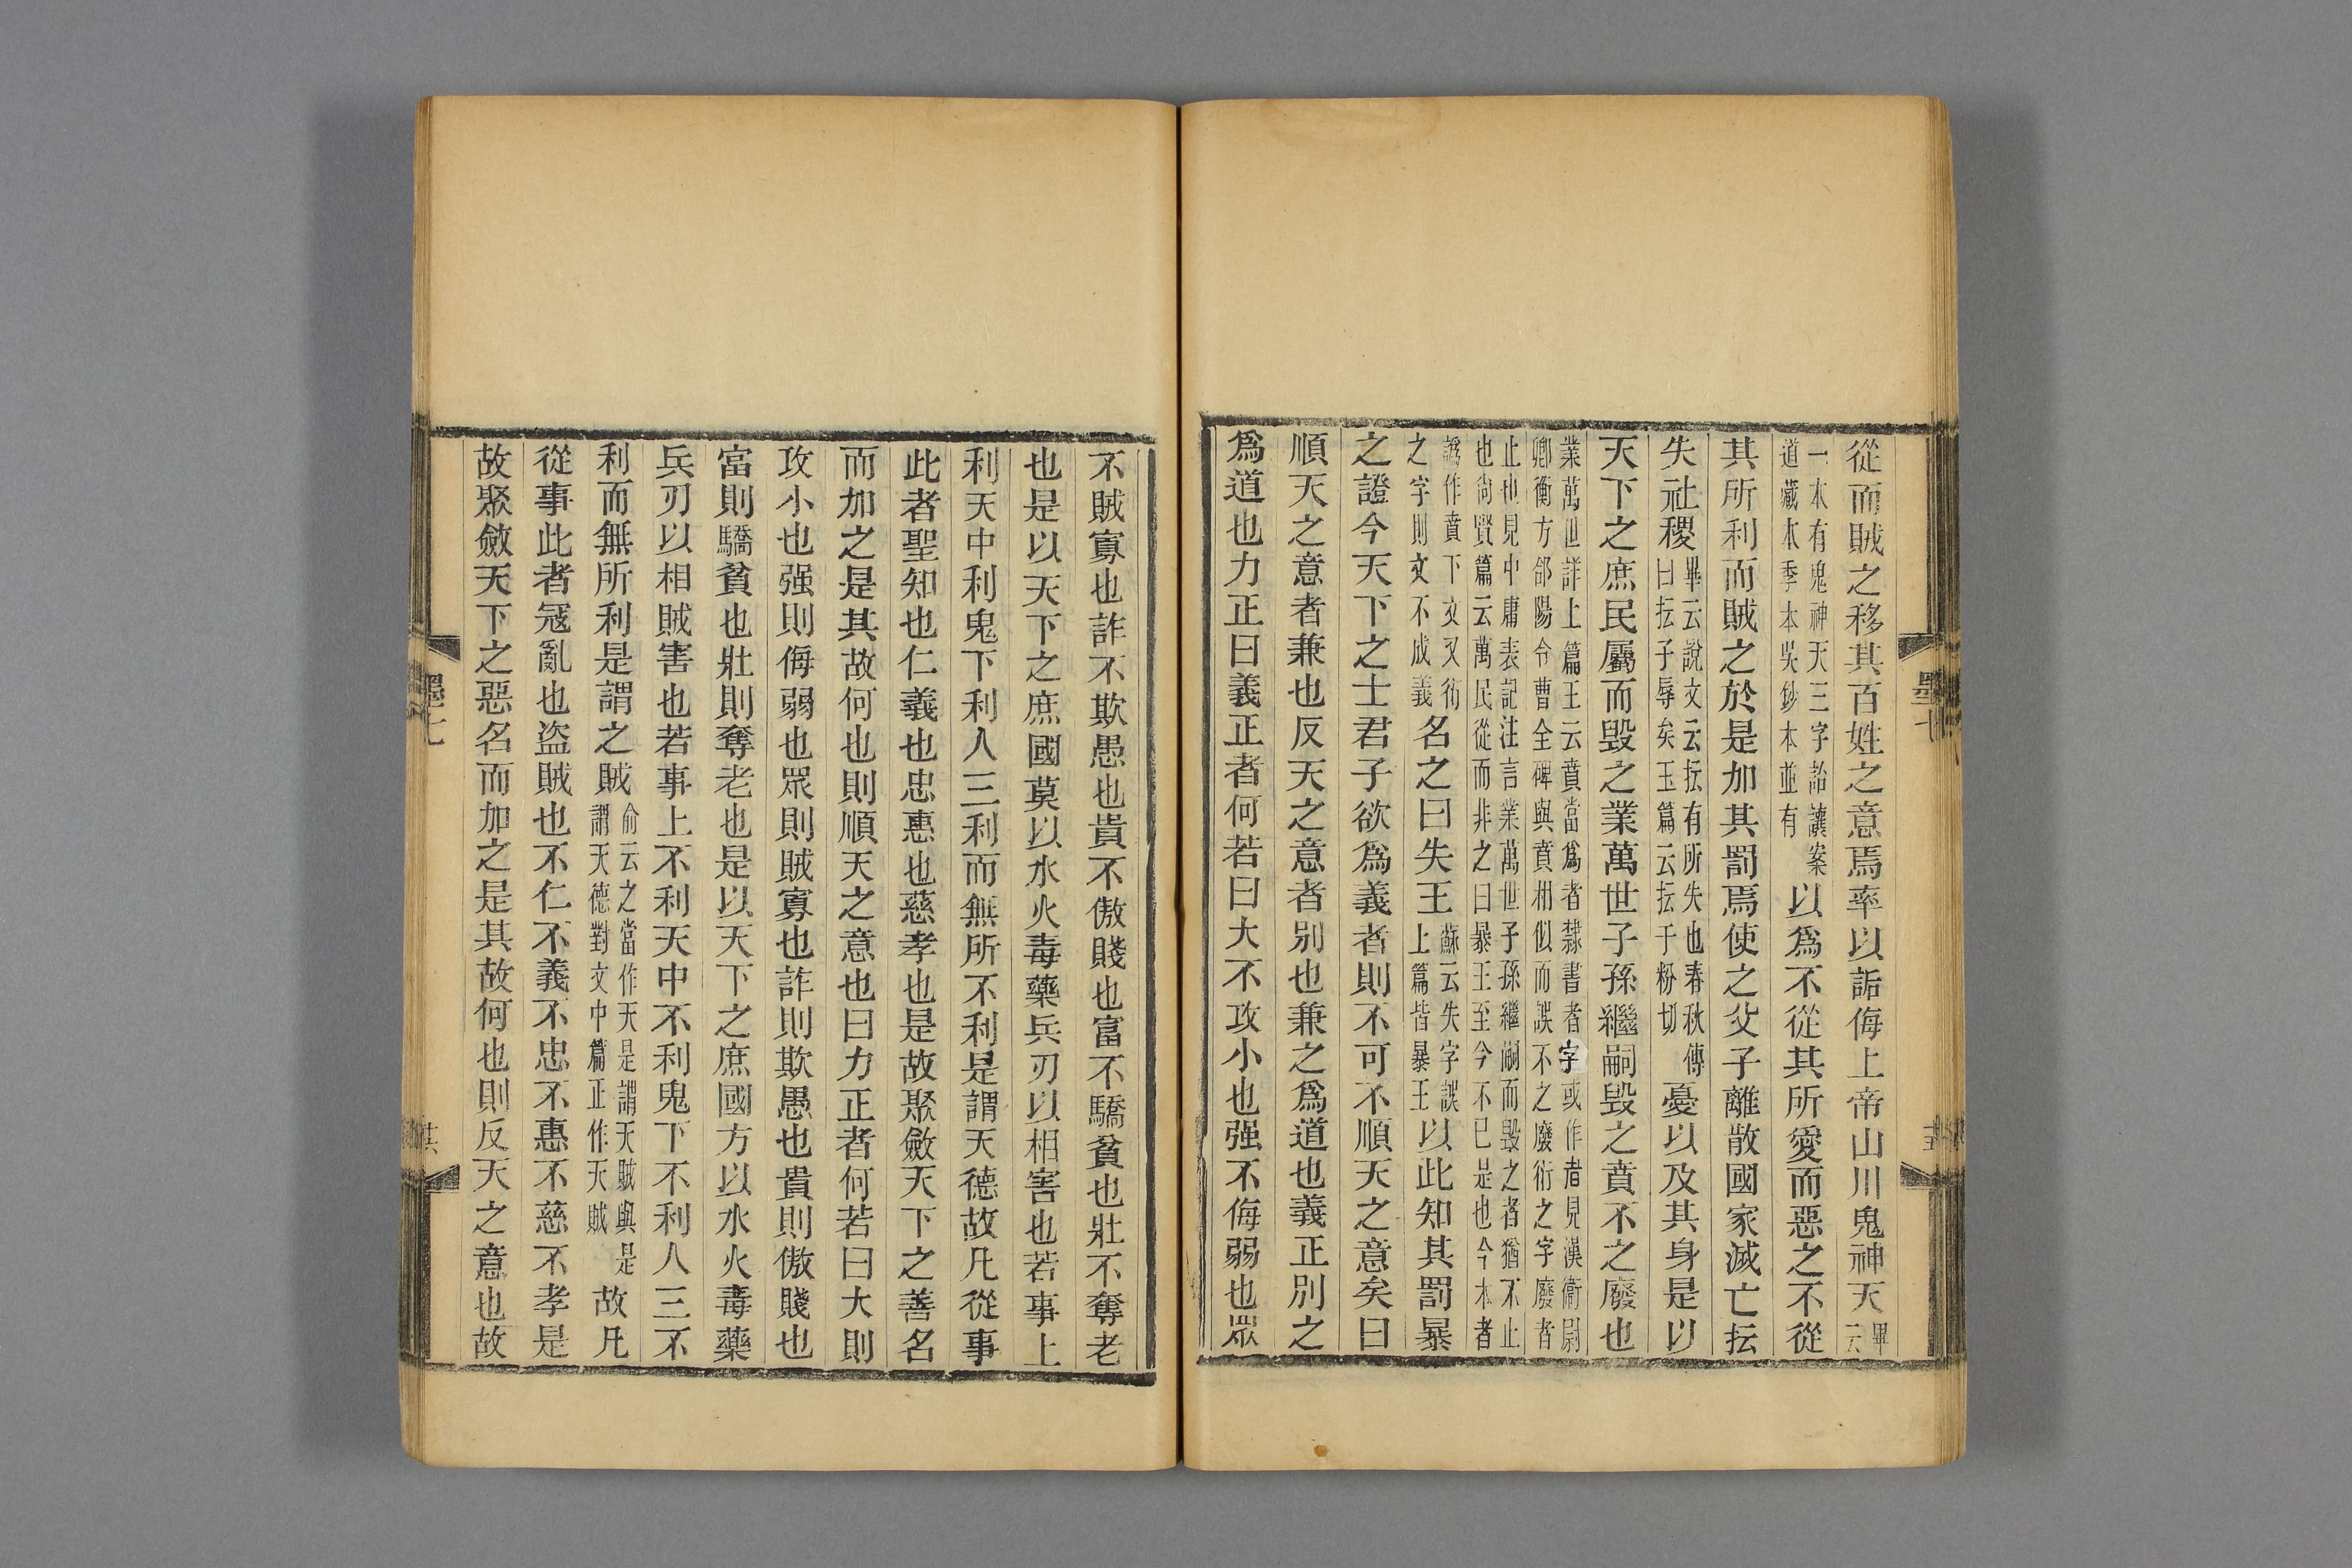 從而賊之移其百姓之意焉率以詬侮上帝山川鬼神天畢云
一本有鬼神天三字詒讓案道藏本季本吳鈔本並有以爲不從其所愛而惡之不從
其所利而賊之於是加其罰焉使之父子離散國家滅亡抎
失社稷畢云說文云抎有所失也春秋傳曰抎子辱矣玉篇云抎于粉切憂以及其身是以
天下之庶民屬而毀之業萬世子孫繼嗣毀之賁不之廢也
業萬世詳上篇王云賁當爲者隸書者字或作㫖見漢衛尉卿衡方郃陽令曹全碑與賁相似而誤不之廢衍之字廢者
止也見中庸表記注言業萬世子孫繼嗣而毀之者猶不止也尚賢篇云萬民從而非之曰暴王至今不已是也今本者
譌作賁下文又衍之字則文不成義名之曰失王蘇云失字誤上篇皆暴王以此知其罰暴
之證今天下之士君子欲爲義者則不可不順天之意矣曰
順天之意者兼也反天之意者别也兼之爲道也義正別之
爲道也力正曰義正者何若曰大不攻小也强不侮弱也眾
不賊寡也詐不欺愚也貴不傲賤也富不驕貧也壯不奪老
也是以天下之庶國莫以水火毒藥兵刃以相害也若事上
利天中利鬼下利人三利而無所不利是謂天德故凡從事
此者聖知也仁義也忠惠也慈孝也是故聚斂天下之善名
而加之是其故何也則順天之意也曰力正者何若曰大則
攻小也强則侮弱也眾則賊寡也詐則欺愚也貴則傲賤也
富則驕貧也壯則奪老也是以天下之庶國方以水火毒藥
兵刃以相賊害也若事上不利天中不利鬼下不利人三不
利而無所利是謂之賊俞云之當作天是謂天賊與是謂天德對文中篇正作天賊故凡
從事此者寇亂也盜賊也不仁不義不忠不惠不慈不孝是
故聚斂天下之惡名而加之是其故何也則反天之意也故
墨七